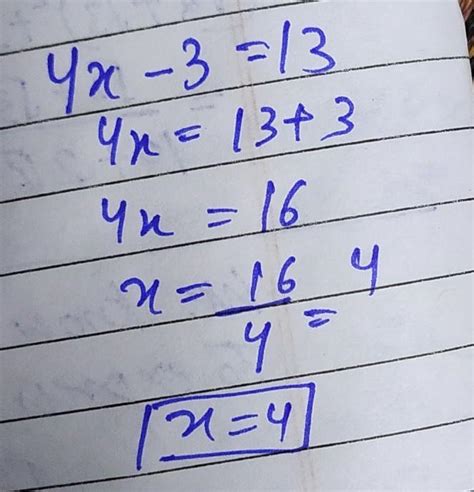 4x - 3 = 13
4x = 13 + 3
4x = 16
x = 16/4 = 4
x = 4